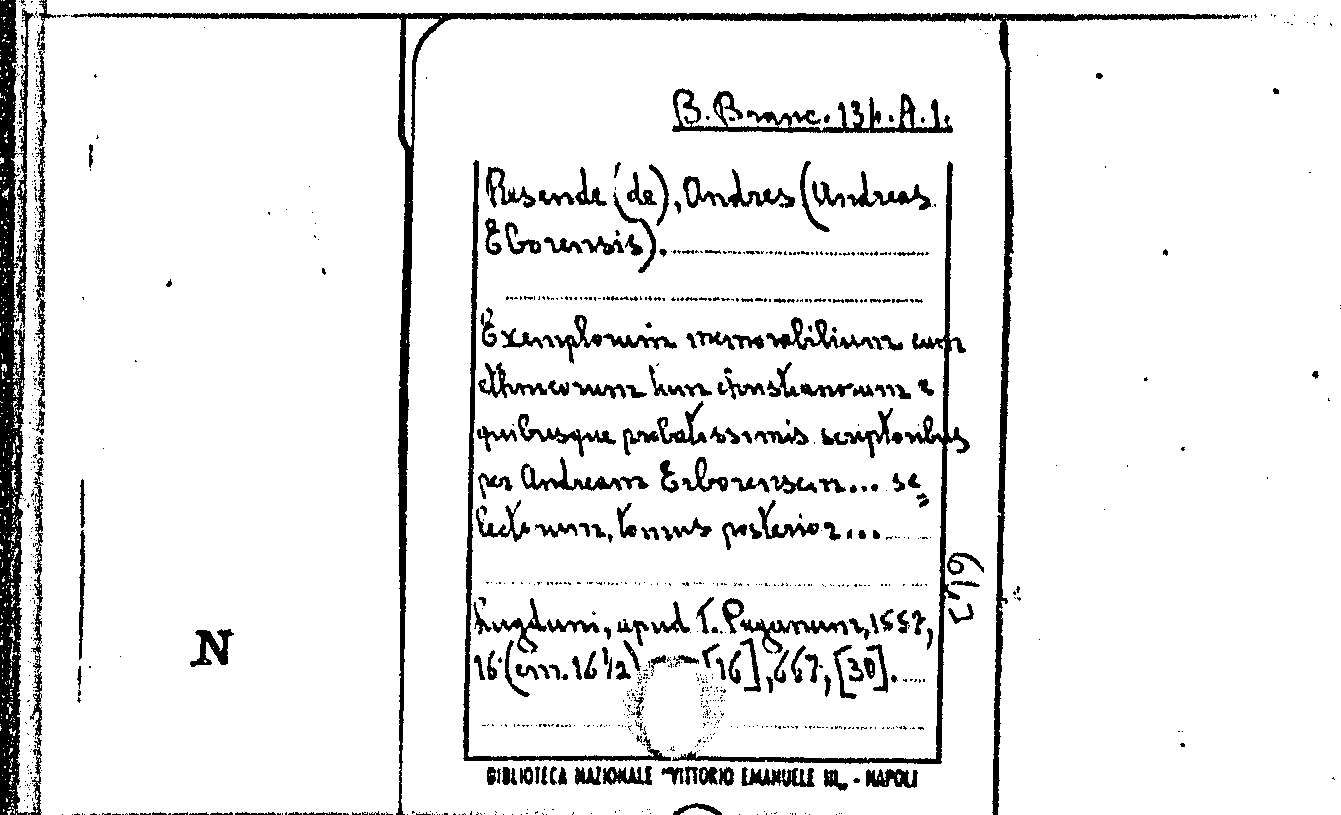 B. Branc. 134. A. 1.
Resende (de), Andres (Andreas
Eborensis).
Exemplorum memorabilium cum
ethnicorum tum christianorum e
quibusque probatissimis scriptoribus
per Andream Erborensem... se=
lectorum, tomus posterior...
Lugduni, apud T. Paganum, 1557,
16 (cm. 16 1/2) [16], 667, [30].
N
BIBLIOTECA NAZIONALE "VITTORIO EMANUELE III„ - NAPOLI